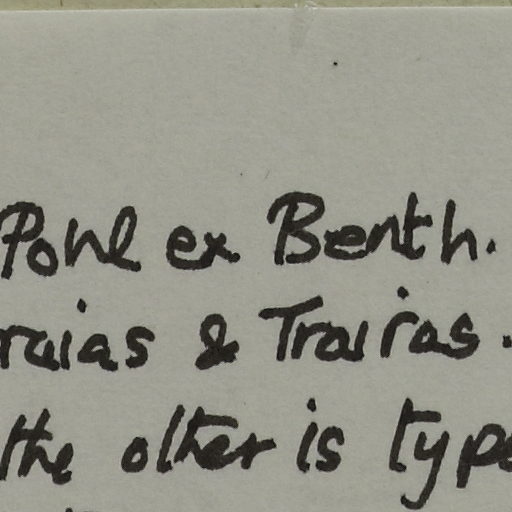 Pohl ex Benth.
raias & Trairas.
the other is type